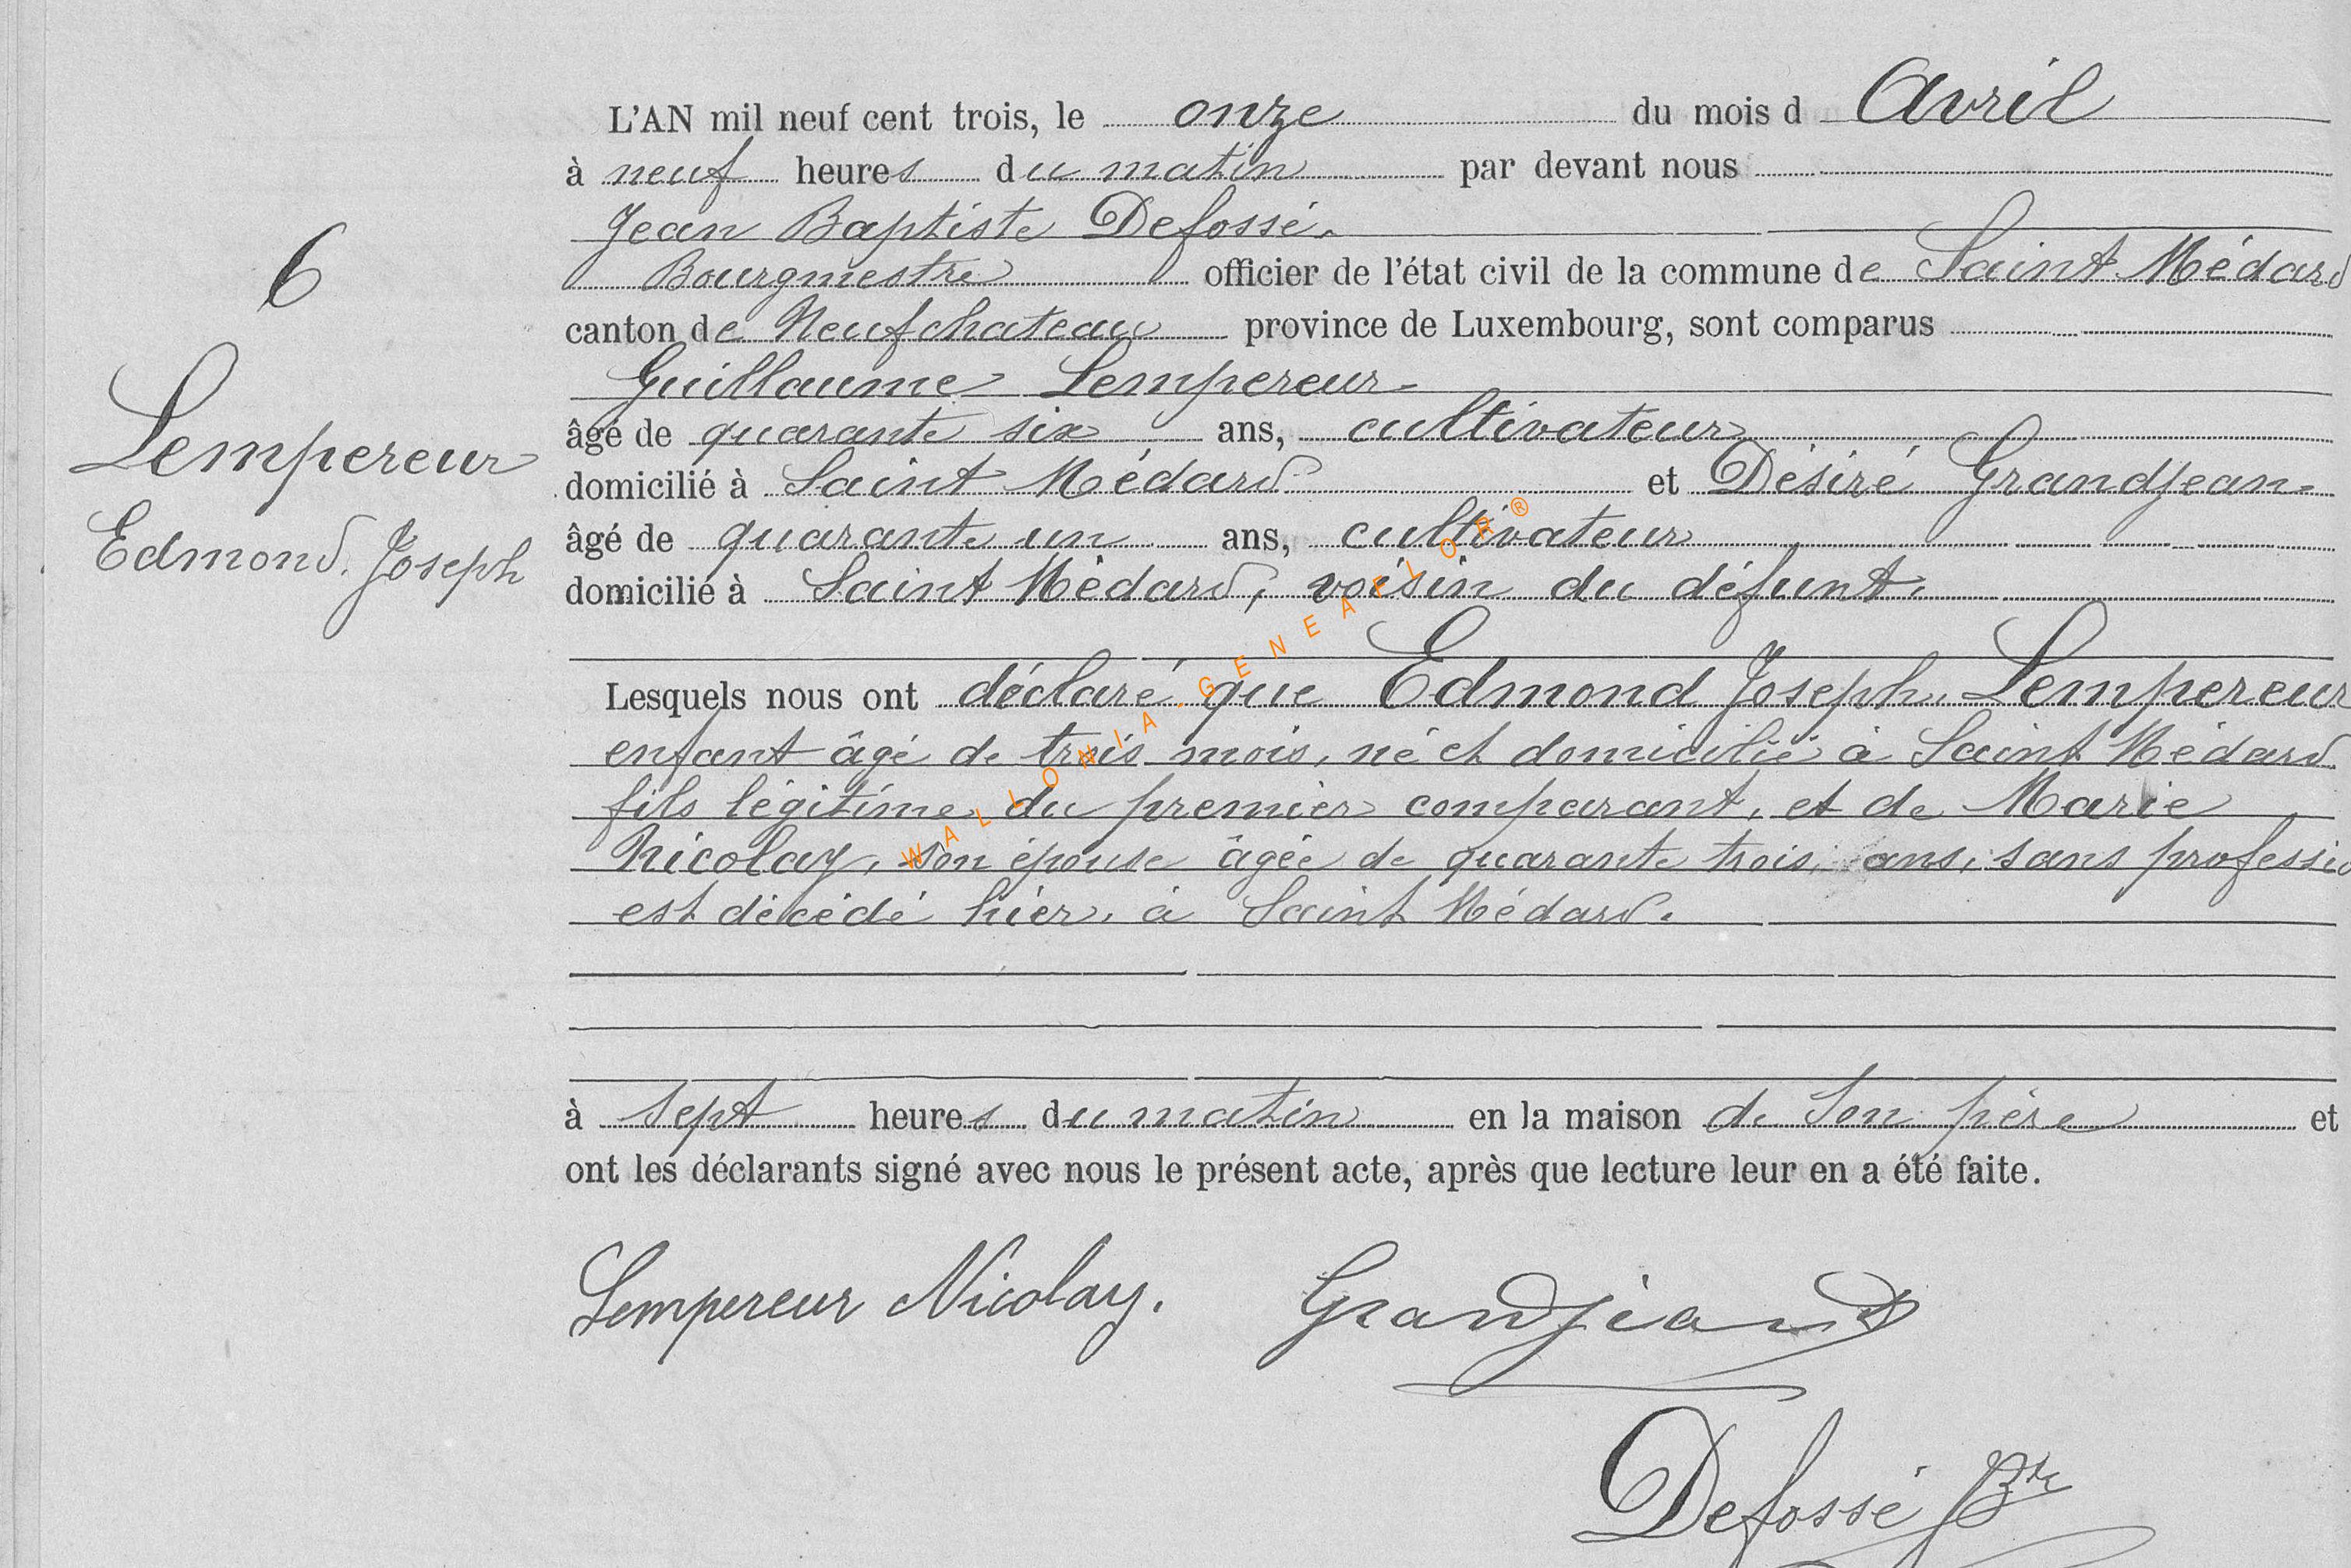 L'AN mil neuf cent trois, le onze du mois d Avril
à neuf heures du matin par devant nous
Jean Baptiste Defossé.
6
Bourgmestre officier de l'état civil de la commune de Saint Médard
canton de Neufchateau province de Luxembourg, sont comparus
Guillaume Lempereur
âgé de quarante six ans, cultivateur
Lempereur
domicilié à Saint Médard et Désiré Grandjean
âgé de quarante un ans, cultivateur
Edmond. Joseph
domicilié à Saint Médard, voisin du défunt.
Lesquels nous ont déclaré que Edmond Joseph Lempereur
enfant âgé de trois mois, né et domicilié à Saint Médard
fils légitime du premier comparant, et de Marie
Nicolay, son épouse âgée de quarante trois ans, sans professio
est décédé hier, à Saint Médard.
à sept heures du matin en la maison de son père et
ont les déclarants signé avec nous le présent acte, après que lecture leur en a été faite.
Lempereur Nicolay. Grandjean
Defossé Bre
WALLONIA-GENEAFLOR®